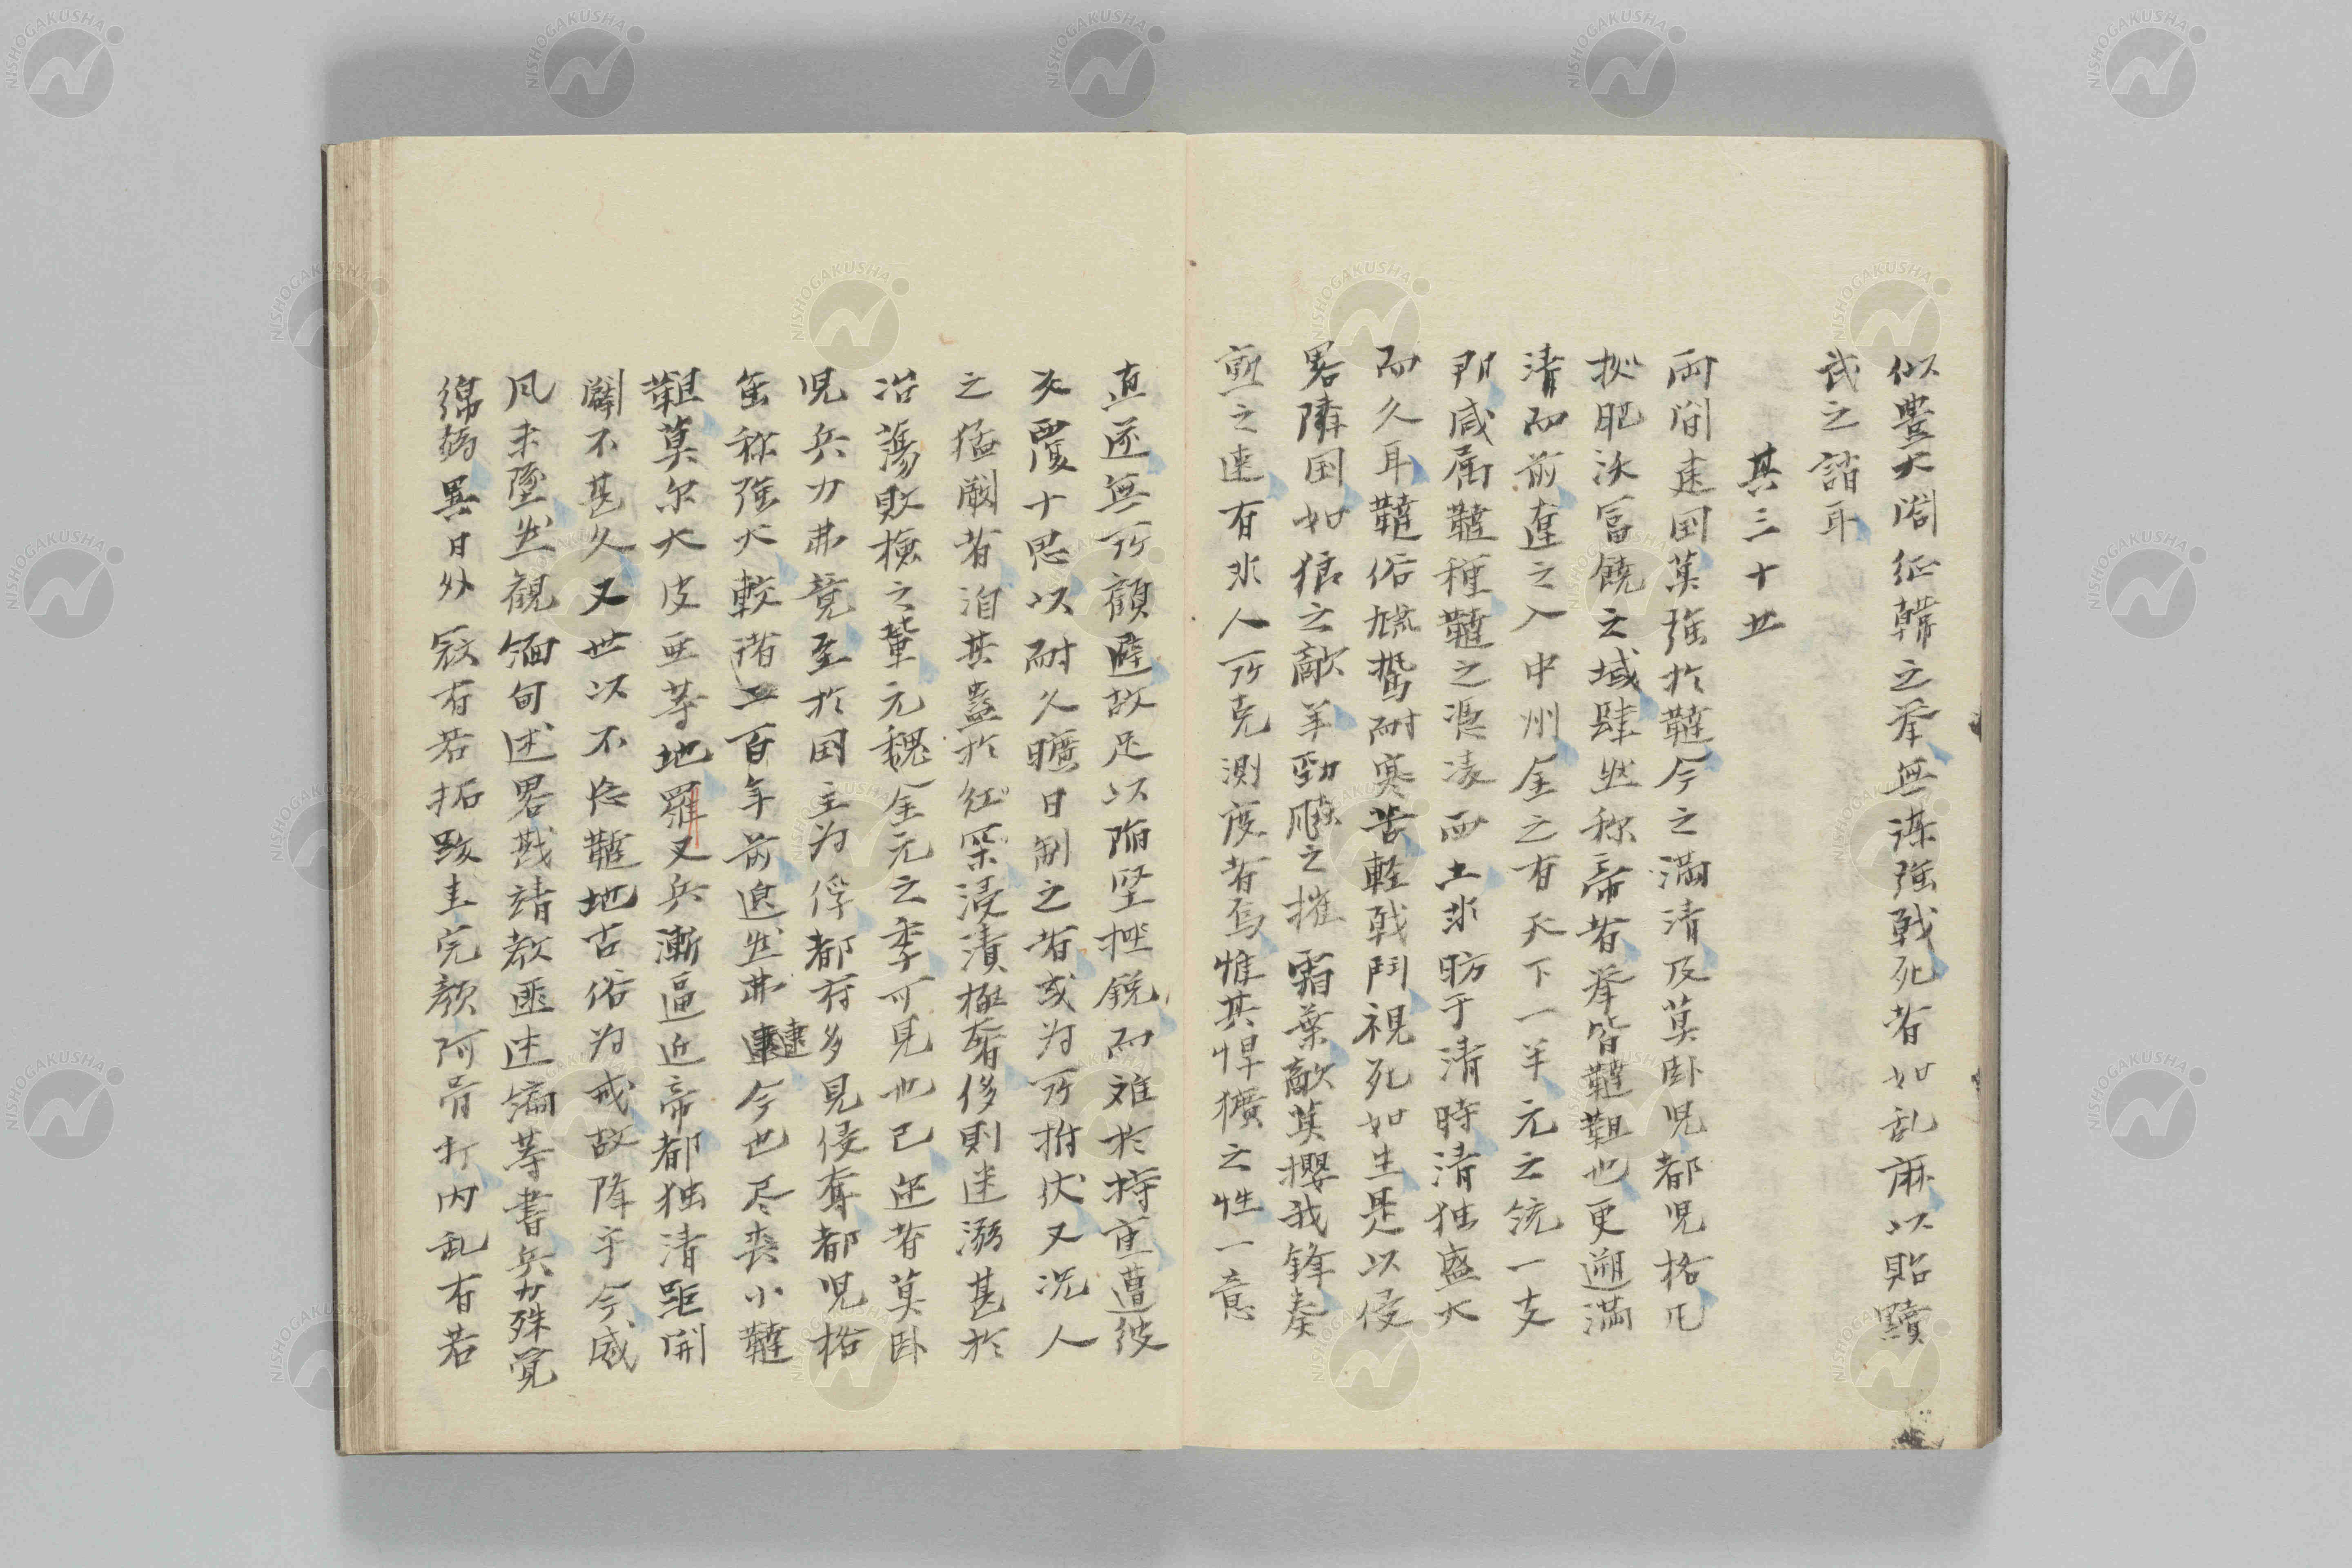 似豊大閤征韓之挙無謀強戦死者如乱麻以貽黷
武之誚耳
其三十丗
両間建国莫強於韃今之満清及莫卧児都児格凡
拠肥沃富饒之域肆然称帝者挙皆韃靼也更遡満
清而前遼之入中州金之有天下一半元之統一支
那咸属韃種韃之憑凌西土非昉于清時清独盛大
而久耳韃俗慓鷙耐寒苦軽戦闘視死如生是以侵
畧隣国如狼之敵羊勁颷之摧霜葉敵莫攖我鋒奏
凱之速有非人所克測度者焉惟其悍獷之性一意
直遂無所顧避故足以陥堅挫鋭而难於持重遭彼
反覆十思以耐久曠日制之者或為所拊伏又况人
之猛厲者洎其蠱於紅裙浸漬極奢侈則迷溺甚於
冶蕩敗検之輩元魏金元之季可見也已近者莫卧
児兵力弗競至於国主為俘都府多見侵奪都児格
虽称強大較諸二百年前邈然弗逮今也尽喪小韃
靼莫尔大皮亜等地羅叉兵漸逼近帝都独清距開
闢不甚久又世以不忘韃地古俗為戒故降于今威
风未墜然観緬甸述畧戡靖教匪述编等書兵力殊覚
綿弱異日外寇有若拓跋圭完顔阿骨打内乱有若